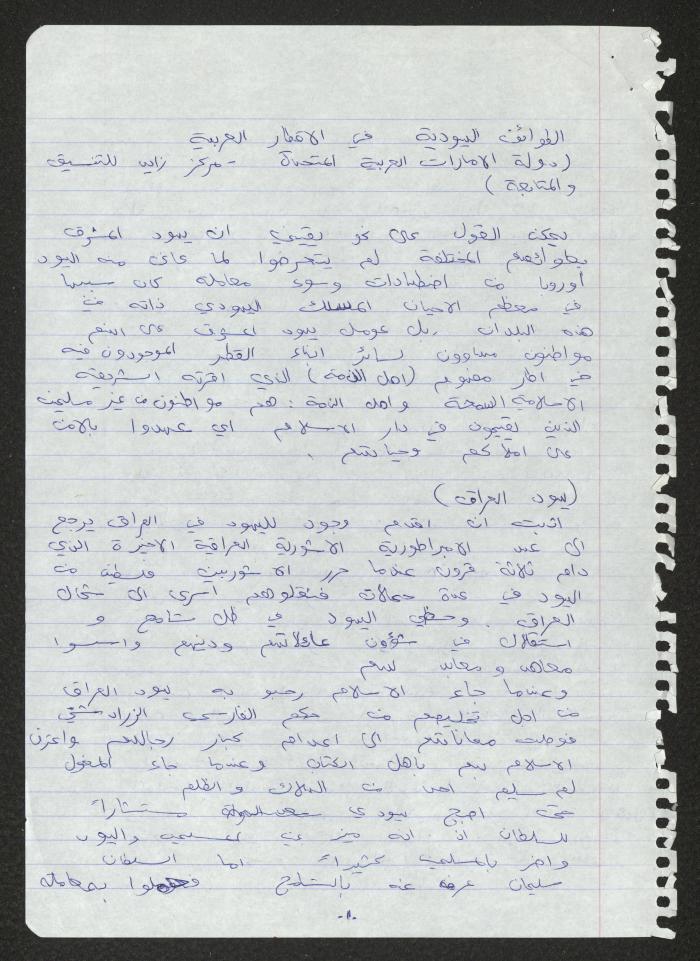 الطوائف اليهودية في الاقطار العربية
(دولة الامارات العربية المتحدة - مركز زايد للتنسيق
والمتابعة)
يمكن القول على نحو يقيني ان يهود المشرق
بطوائفهم المختلفة لم يتعرضوا لما عانى منه اليهود
أوروبا من اضطهادات وسوء معاملة كان سببها
في معظم الاحيان المسلك اليهودي ذاته في
هذه البلدان . بل عومل يهود المشرق على انهم
مواطنون مساوون لسائر ابناء القطر الموجودون فيه
في اطار مفهوم (اهل الذمة) الذي اقرته الشريعة
الاسلامية السمحة واهل الذمة : هم مواطنون من غير مسلمين
الذين يقيمون في دار الاسلام اي عهدوا بالامن
على املاكهم وحياتهم .
(يهود العراق)
اثبت ان اقدم وجود لليهود في العراق يرجع
الى عهد الامبراطورية الاشورية العراقية الاخيرة الذي
دام ثلاثة قرون عندما حرر الاشوريين فلسطين من
اليهود في عدة حملات فنقلوهم اسرى الى شمال
العراق . وحظي اليهود في ظل تسامح و
استقلال في شؤون عائلاتهم ودينهم واسسوا
معاهد و معابد لهم
وعندما جاء الاسلام رحبو به يهود العراق
من اجل تخليصهم من حكم الفارسي الزرادشتي
فوصلت معاناتهم الى اعدام كبار رجالهم واعترف
الاسلام بهم باهل الكتاب وعندما جاء المغول
لم يسلم احد من الهلاك والظلم
حتى اصبح يهودي سعد الدولة مستشاراً
للسلطان اذ انه ميز بين المسيحي واليهود
واضر بالمسلمين كثيراً اما السلطان
سليمان عرف عنه بالتسامح فعوملوا بمعاملة
-١-